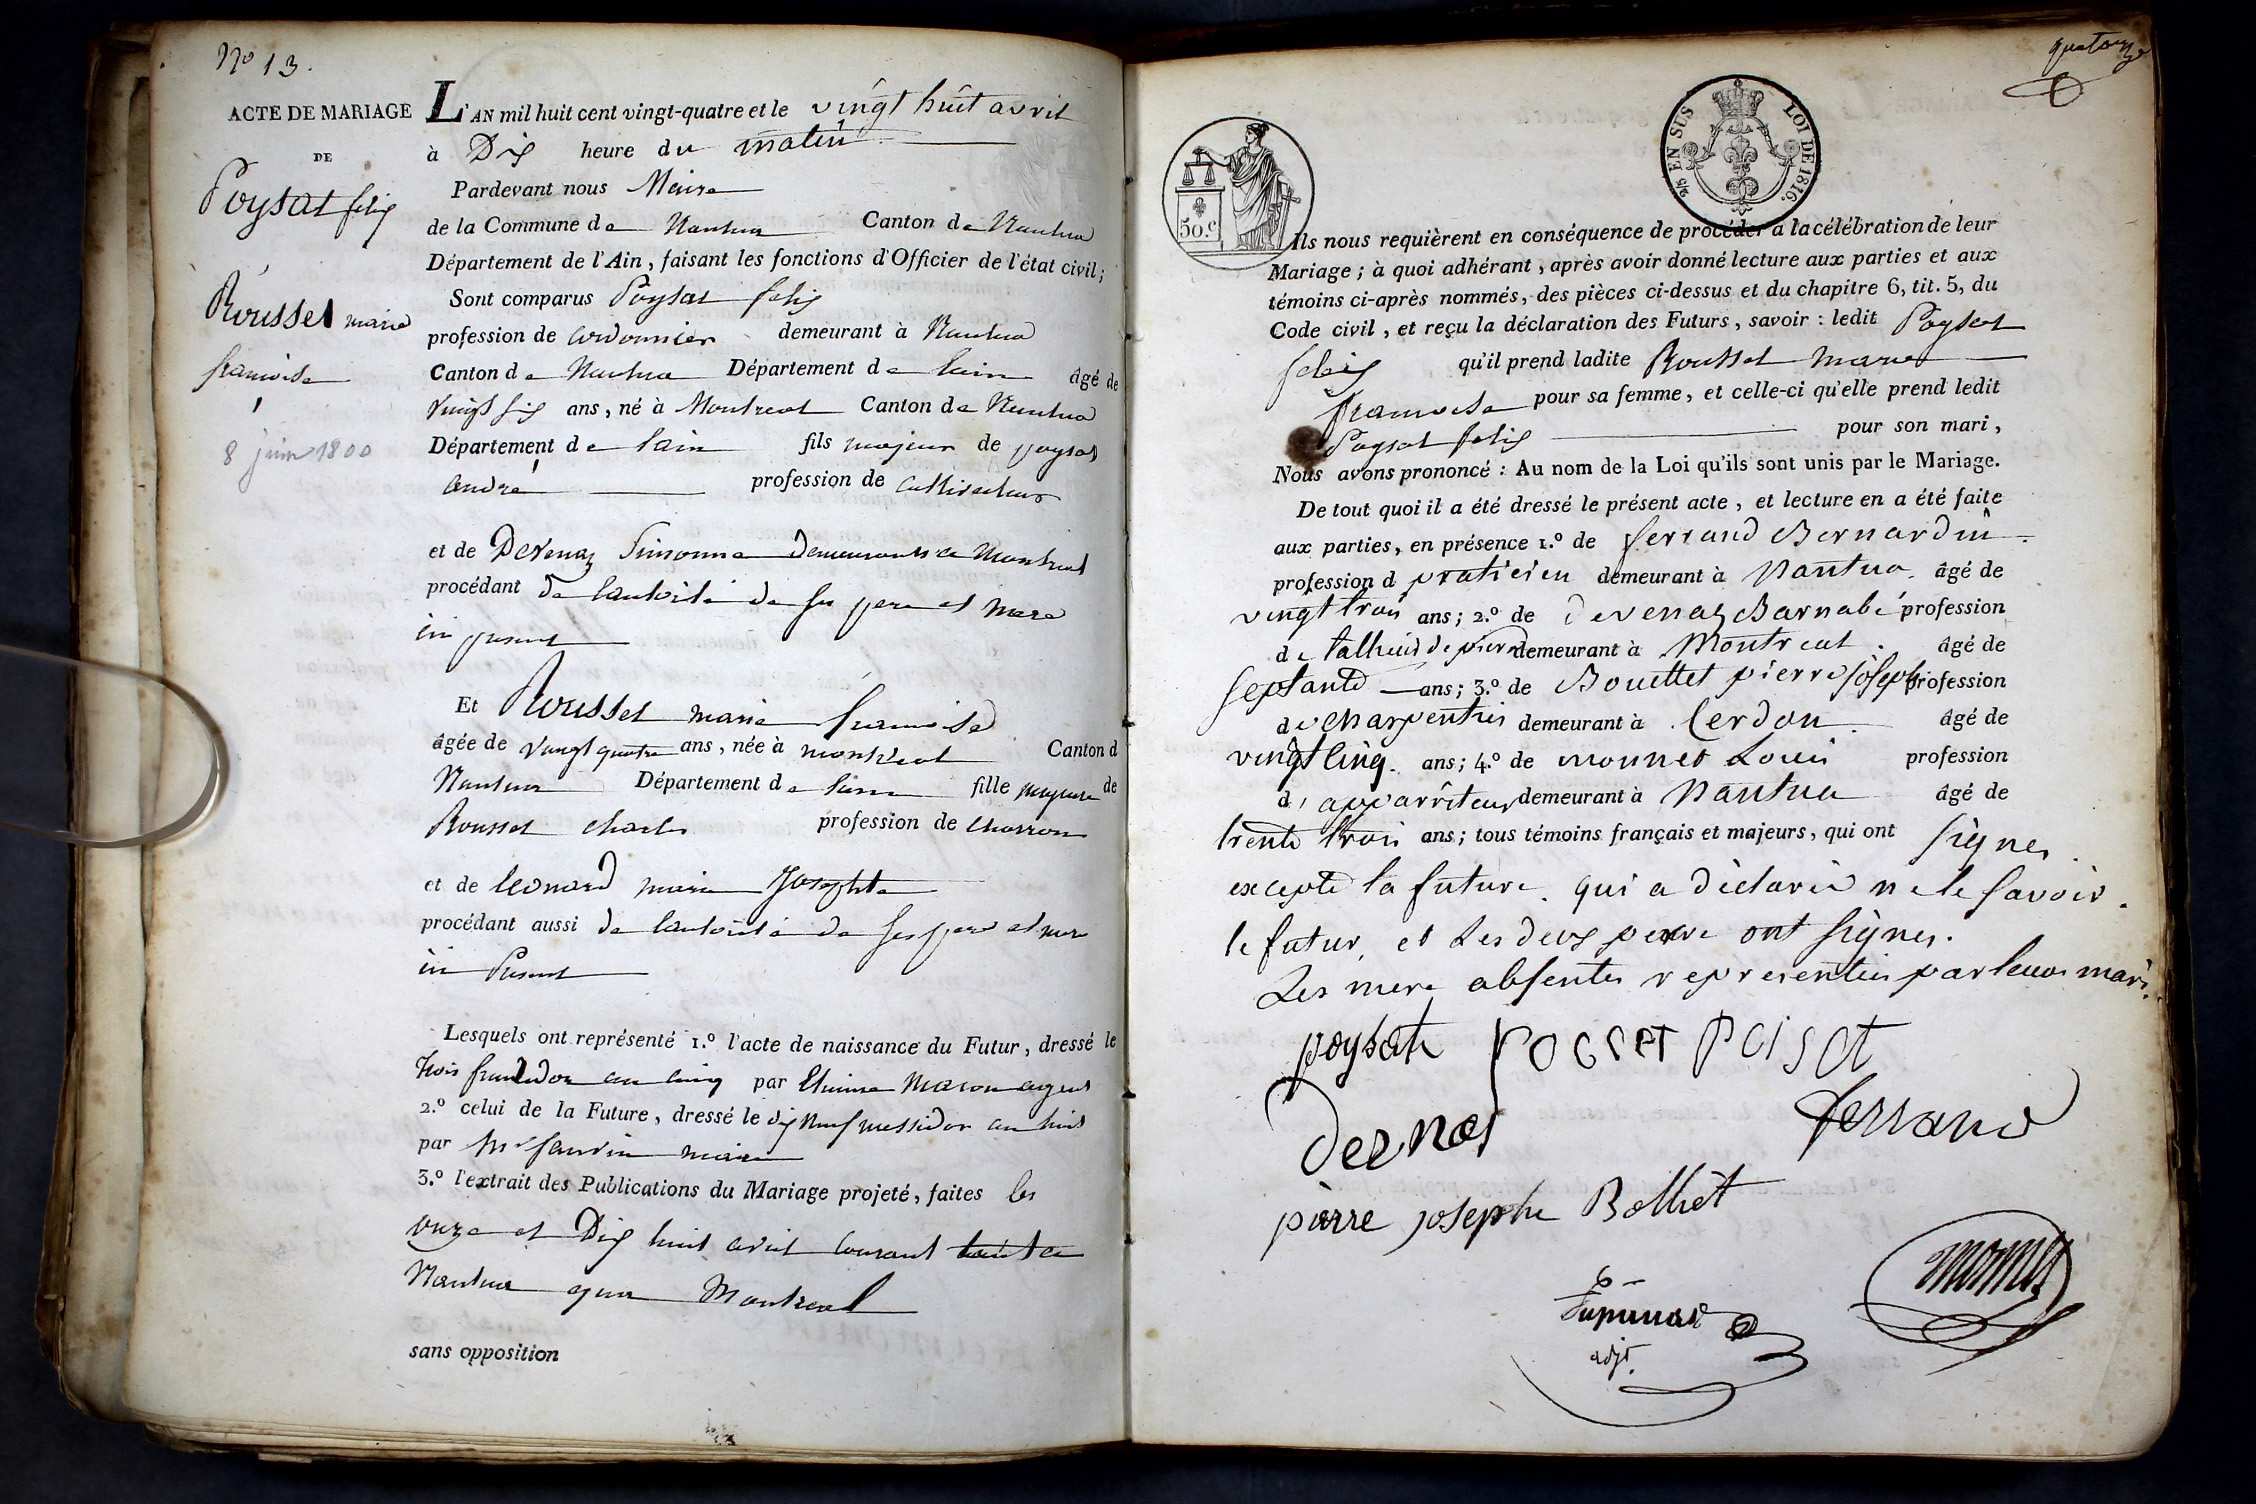 N° 13.
ACTE DE MARIAGE
DE
Poysat felix
Rousset marie
francoise
8 juin 1800
L'AN mil huit cent vingt-quatre et le vingt huit avril
à Dix heure du matin
Pardevant nous Maire
de la Commune de Nantua Canton de Nantua
Département de l'Ain, faisant les fonctions d'Officier de l'état civil;
Sont comparus Poysat felix
profession de cordonnier demeurant à Nantua
Canton de Nantua Département de lain âgé de
vingt six ans, né à Montreal Canton de Nantua
Département de lain fils majeur de poysat
andré profession de cultivateur
et de Devenaz Simonne demeurants a Montreal
procédant de lautorité de ses pere et mere
ici present
Et Rousset marie francoise
âgée de vingt quatre ans, née à montreal Canton d
Nantua Département de lain fille majeure de
Rousset charles profession de charron
et de leonard marie Josephte
procédant aussi de lautorité de ses pere et mere
ici Present
Lesquels ont représenté 1.° l'acte de naissance du Futur, dressé le
trois fructidor an cinq par Etienne Macon agent
2.° celui de la Future, dressé le dix neuf messidor an huit
par Mr maire
3.° l'extrait des Publications du Mariage projeté, faites les
onze et Dix huit avril courant tant a
Nantua qua Montreal
sans opposition
quatorze
2/5 EN SUS LOI DE 1816.
50.c
Ils nous requièrent en conséquence de procéder à la célébration de leur
Mariage; à quoi adhérant, après avoir donné lecture aux parties et aux
témoins ci-après nommés, des pièces ci-dessus et du chapitre 6, tit. 5, du
Code civil, et reçu la déclaration des Futurs, savoir : ledit Poysat
felix qu'il prend ladite Rousset marie
francoise pour sa femme, et celle-ci qu'elle prend ledit
Poysat felix pour son mari,
Nous avons prononcé : Au nom de la Loi qu'ils sont unis par le Mariage.
De tout quoi il a été dressé le présent acte, et lecture en a été faite
aux parties, en présence 1.° de ferrand Bernardin
profession d praticien demeurant à Nantua. âgé de
vingt trois ans; 2.° de devenaz Barnabé profession
de talheur de pierre demeurant à Montreal. âgé de
septante ans; 3.° de Bouettet pierre joseph profession
de charpentier demeurant à Cerdon. âgé de
vingt cinq. ans; 4.° de monnet Louis profession
d'apparriteur demeurant à Nantua âgé de
trente trois ans; tous témoins français et majeurs, qui ont signés.
excepté la future. qui a déclarée ne le savoir.
le futur, et Les deux pere ont signés.
Les mere absentes representées par leurs maris.
poysat rocset Poisat
Devnas ferrand
pierre josephe Bolliet
monnet
adjt.